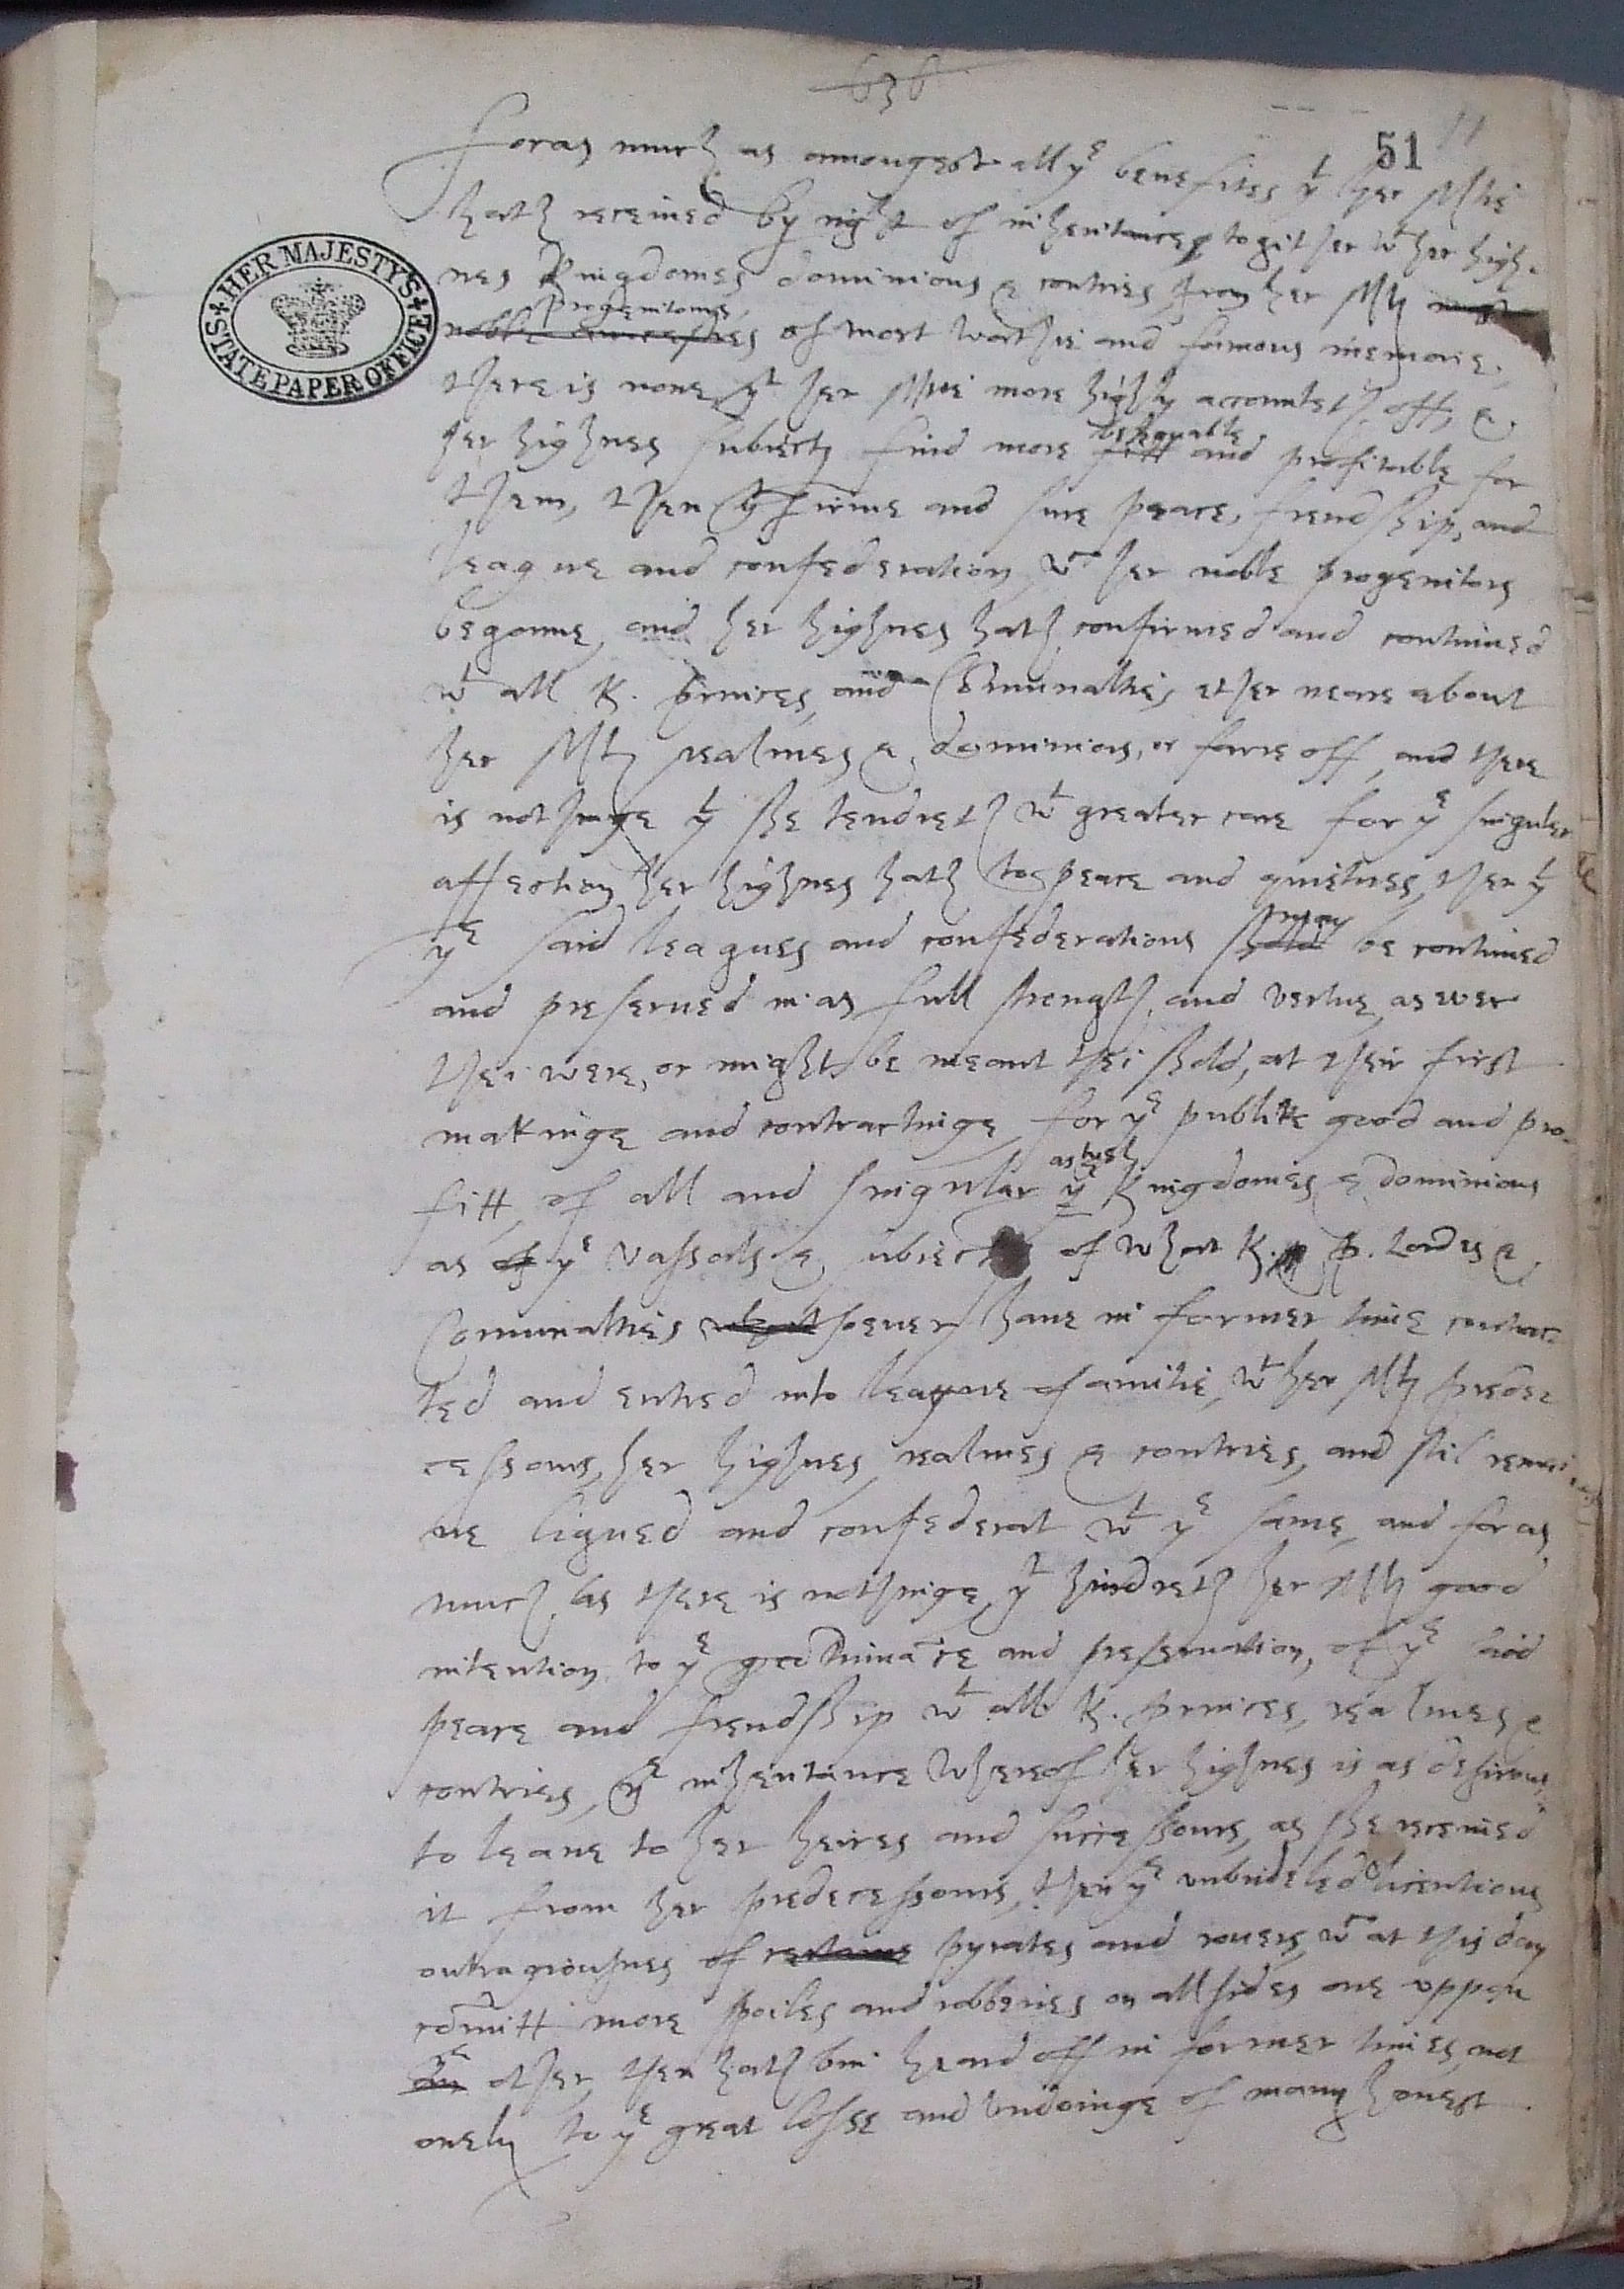 636
51
11
Foras much as amongest all yͤ benefites yᵗ her Mᵗⁱᵉ
hath receiued by right of inheritance, togither wᵗ her high-
nes Kingdomes, dominions & contries, from her Mᵗˢ most
noble auncestres progenitours, of most worthie and famous memorie,
there is none, yᵗ her Mᵗⁱᵉ more highly accounteth off, &
HER MAJESTY'S STATE PAPER OFFICE
her highnes subiects find more fitt and profitable for
them, then yͤ firme and sure peace, frendship, and
league and confederation, wᶜʰ her noble progenitors
begonne, and her highnes hath confirmed and continued
wᵗ all K. princes, and Cōmunalties, ether neare about
her Mᵗˢ realmes & dominions, or farre off, and there
is nothinge yᵗ she tendreth wᵗ greater care for yͤ singuler
affection her highnes hath to peace and quietnes, then yᵗ
yͤ said leagues and confederations shold may be continued
and preserued in as full strength, and vertue, as euer
thei were, or might be meant thei shold, at their first
makinge and contractinge, for yͤ publike good and pro-
fitt, of all and singular as wel yͤ Kingdomes & dominions
as of yͤ vassals & subiects of what K. P. Lordes &
Cōmunalties what soeuer, haue in former time contrac-
ted and entred into league of amitie, wᵗ her Mᵗˢ prede-
cessours, her highnes realmes & contries, and stil remai-
ne ligued and confederat wᵗ yͤ same, and foras
much as there is nothinge, yᵗ hindreth her Mᵗˢ good
intention to yͤ continuāce and preseruation, of yͤ said
peace and frendship wᵗ all K. princes, realmes &
contries, yͤ inheritance whereof her highnes is as desirous
to leaue to her heires and successours, as she receiued
it from her predecessours, then yͤ unbrideled licentious
outragiousnes of certaine pyrates and rouers, wᶜʰ at this day
cōmitt more spoiles and robberies on all sides one uppon
an other, then hath bin heard off in former times, not
onely to yͤ great losse and vndoinge of many honest